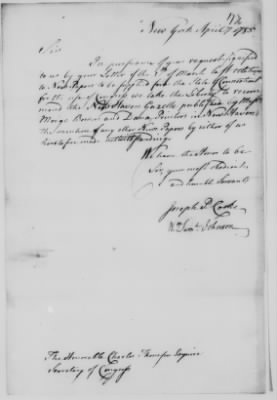 New York April 7th 1785
Sir
In pursuance of your request signified
to us by your Letter of the 9th of March last relative
to News Papers to be supplied from the State of Connecticut
for the use of Congress we take the Liberty to recom-
mend the New Haven Gazette published by Messrs
Meigs Bowen and Dana, Printers in New Haven
the mention of any other News Papers by either of us
heretofore made notwithstanding.
We have the Honor to be
Sir, your most Obedient
and humble Servants
Joseph P. Cooke
Wm Saml Johnson
The Honorable Charles Thomson Esquire
Secretary of Congress